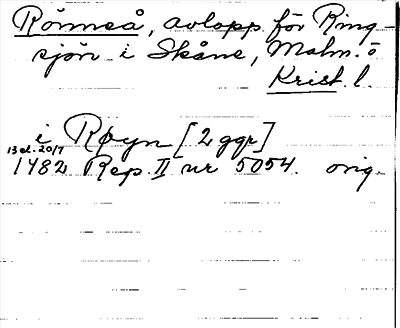 Rönneå, avlopp för Ring-
sjön i Skåne, Malm. o
Krist. l.
i Røyn [2 ggr]
13 el. 20/7
1482 Rep. II nr 5054. orig.